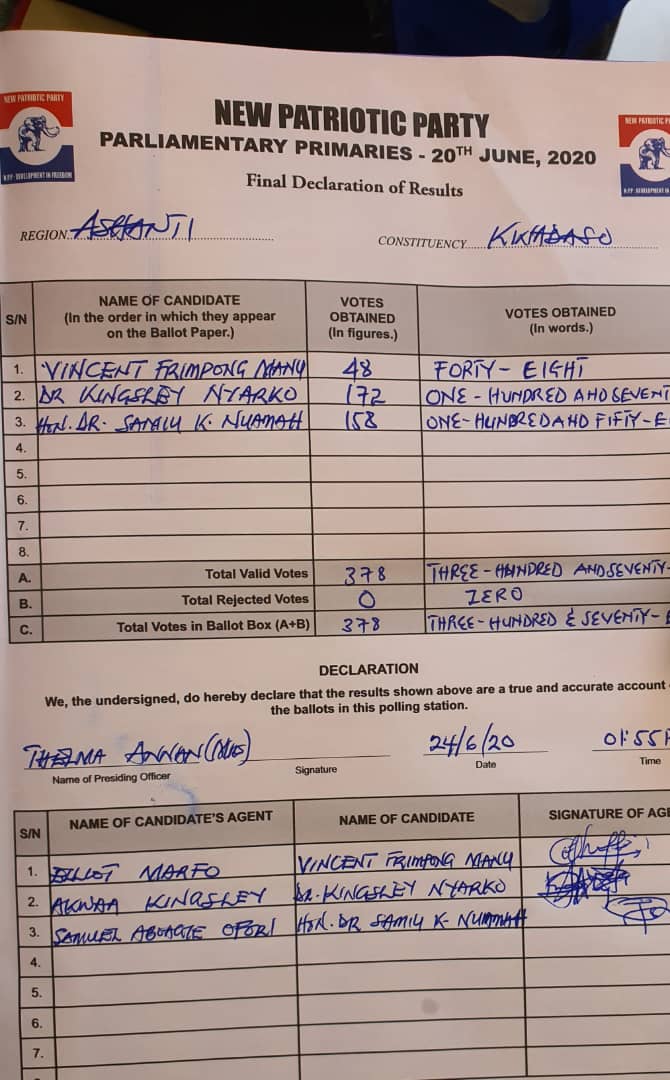 NEW PATRIOTIC PARTY
NPP - DEVELOPMENT IN FREEDOM
NEW PATRIOTIC PARTY
PARLIAMENTARY PRIMARIES - 20TH JUNE, 2020
Final Declaration of Results
NEW PATRIOTIC P
NPP - DEVELOPMENT IN
REGION ASHANTI CONSTITUENCY KWADASO
S/N NAME OF CANDIDATE (In the order in which they appear on the Ballot Paper.) VOTES OBTAINED (In figures.) VOTES OBTAINED (In words.)
1. VINCENT FRIMPONG MANU 48 FORTY - EIGHT
2. DR KINGSLEY NYARKO 172 ONE - HUNDRED AND SEVENT
3. HON. DR. SAMIU K. NUAMAH 158 ONE-HUNDRED AND FIFTY-E
4.
5.
6.
7.
8.
A. Total Valid Votes 378 THREE - HUNDRED AND SEVENTY-
B. Total Rejected Votes 0 ZERO
C. Total Votes in Ballot Box (A+B) 378 THREE-HUNDRED & SEVENTY-
DECLARATION
We, the undersigned, do hereby declare that the results shown above are a true and accurate account
the ballots in this polling station.
THELMA ANNAN 24/6/20 01:55P
Name of Presiding Officer Signature Date Time
S/N NAME OF CANDIDATE'S AGENT NAME OF CANDIDATE SIGNATURE OF AGE
1. ELLIOT MARFO VINCENT FRIMPONG MANU
2. AKWAA KINGSLEY DR. KINGSLEY NYARKO
3. SAMUEL ABOAGYE OFORI HON. DR SAMIU K. NUAMAH
4.
5.
6.
7.